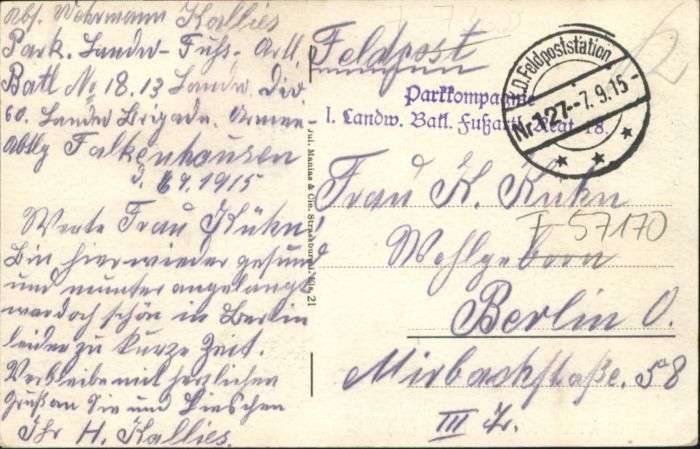 Abs. Wehrmann Kallies
Park. Landw- Fuhs- Artl.
Batl No 18. 13 Landw. Div
60. Landw Brigade. Armee-
Abtlg Falkenhausen
d. 6 9. 1915
Werte Frau Kühn!
Bin hier wieder gesund
und munter angelangt
war doch schön in Berlin
leider zu kurze Zeit.
Verbleibe mit herzlichen
Gruß an Sie und Lieschen
Ihr H. Kallies.
Jul. Manias & Cie. Strassburg i. Els. 21
Feldpost
Parkkompagnie
1. Landw. Batl. Fußartl. Regt. 18.
K.D. Feldpoststation
Nr. 127 -- 7. 9. 15 -
Frau K. Kühn
Wohlgeborn
F 57170
Berlin O.
Mirbachstraße. 58
III Tr.